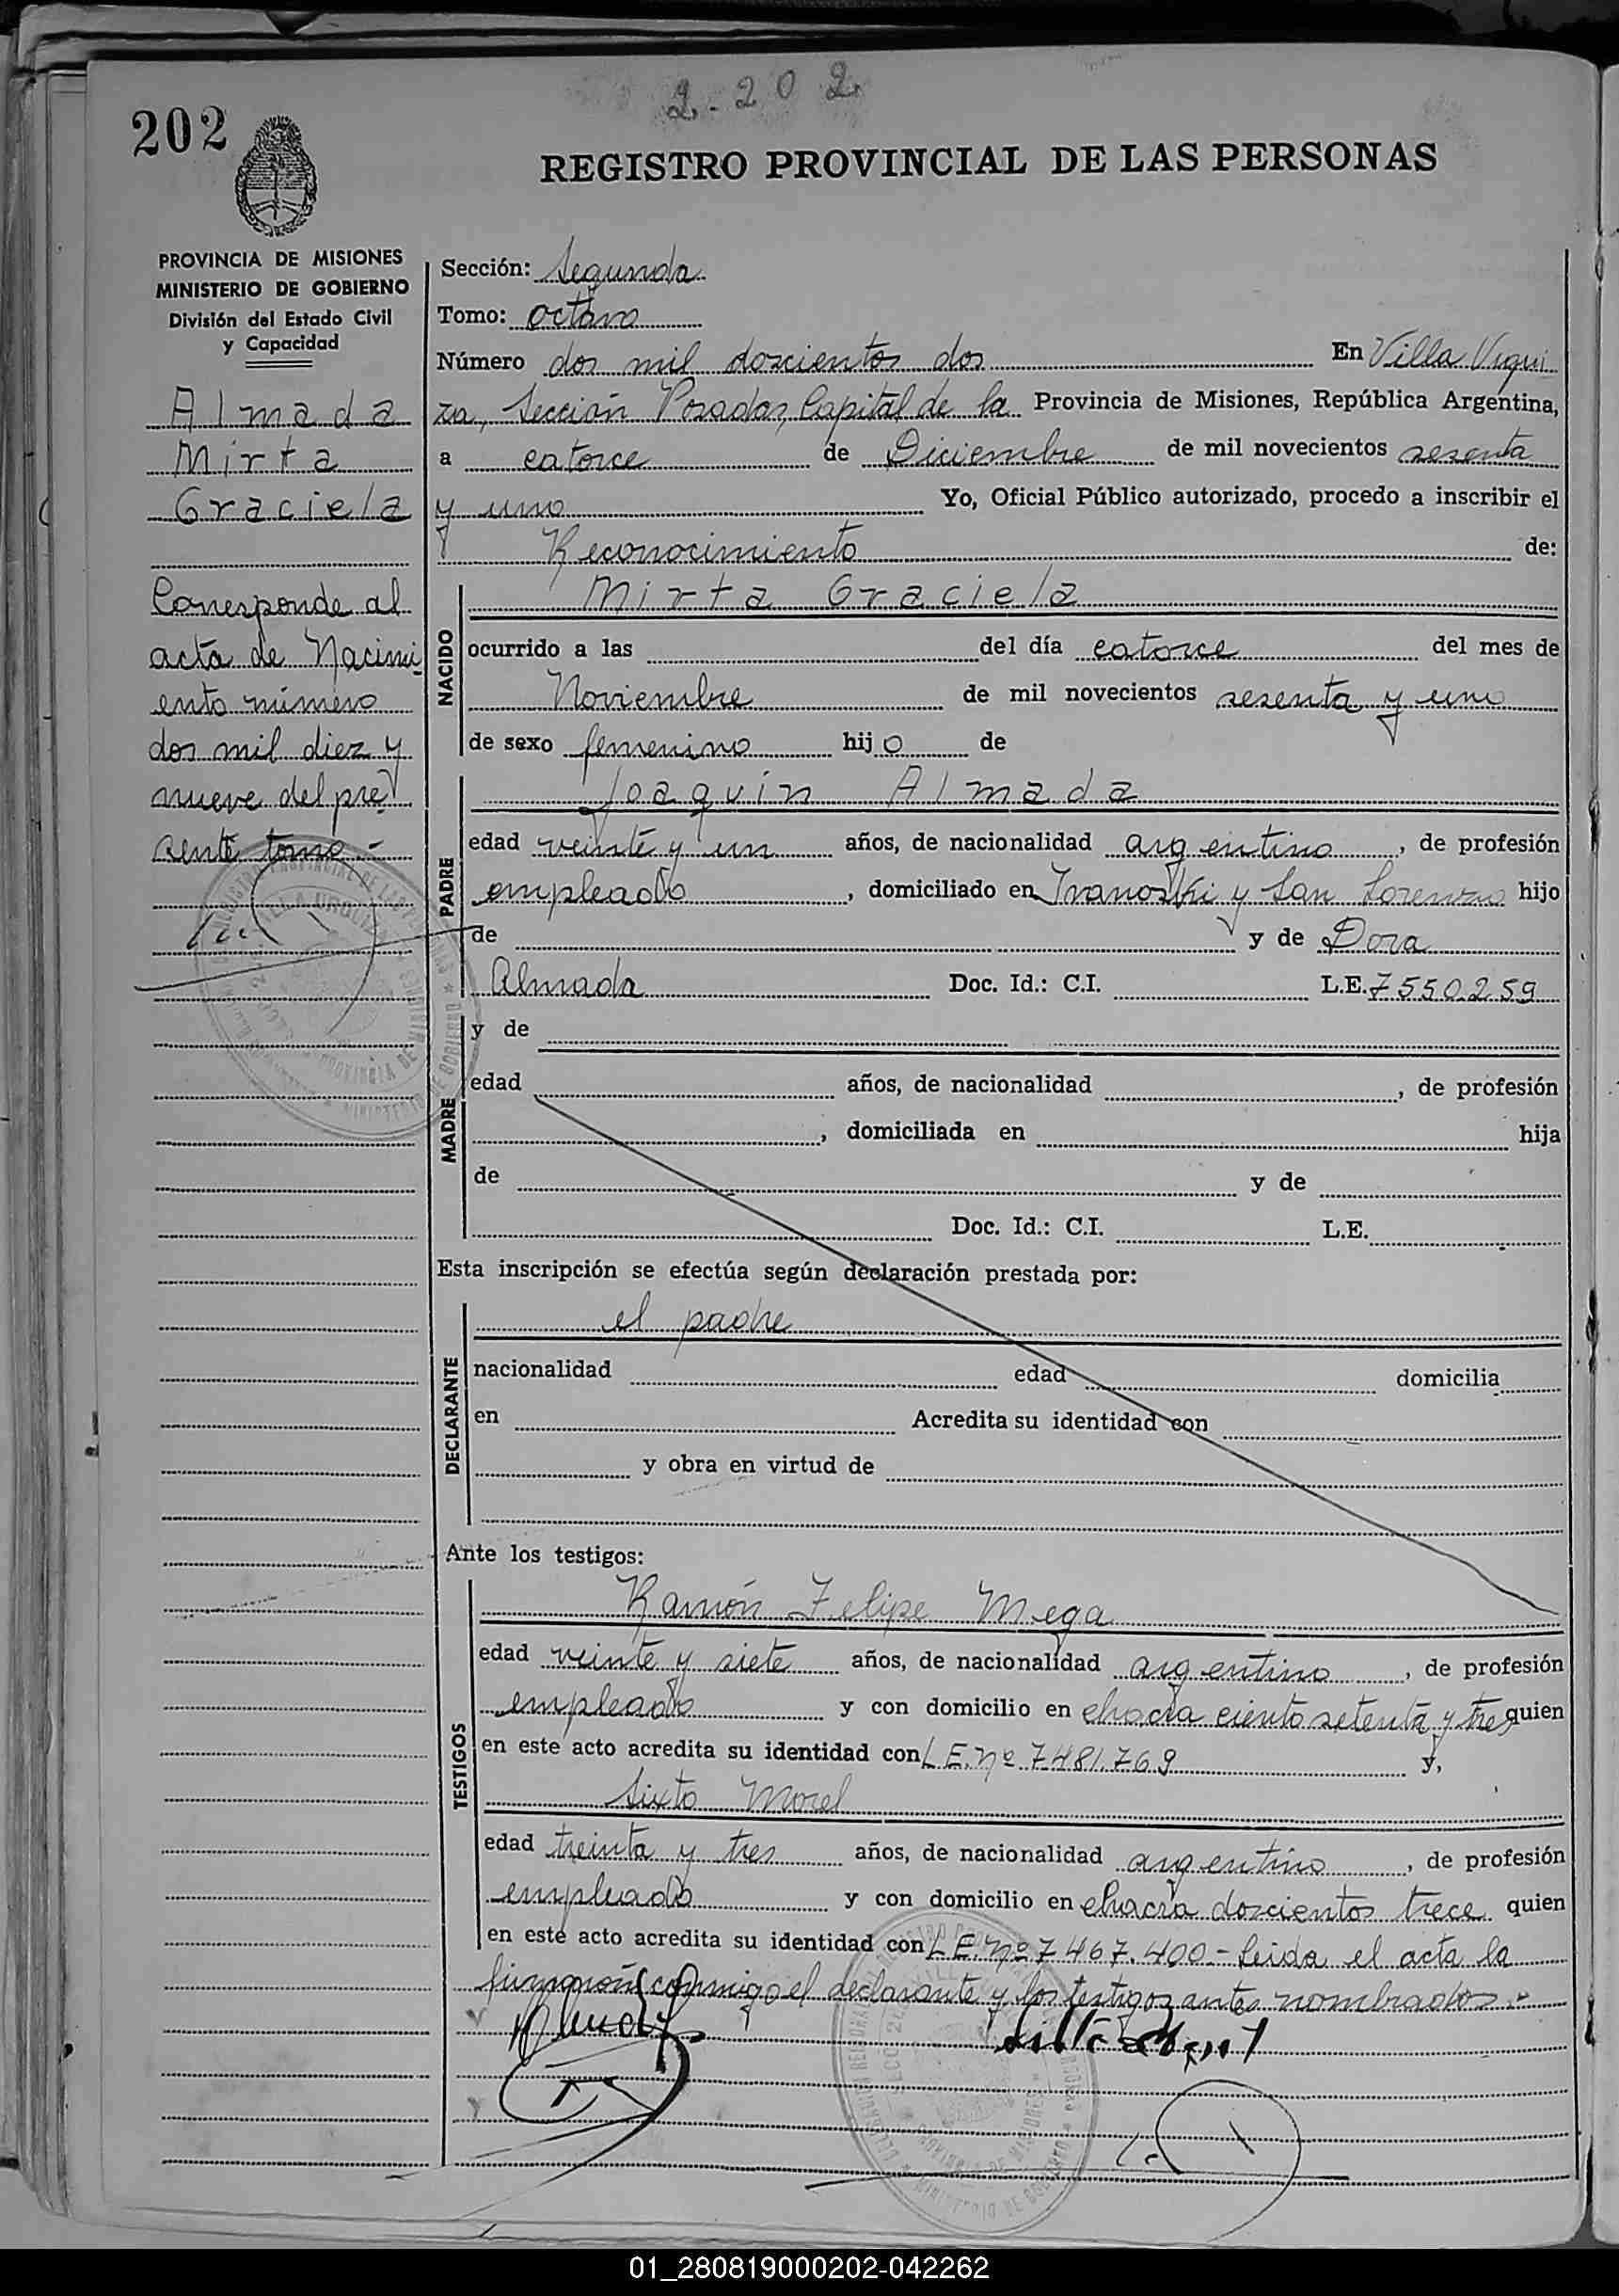 2.202
202
REGISTRO PROVINCIAL DE LAS PERSONAS
PROVINCIA DE MISIONES
MINISTERIO DE GOBIERNO
División del Estado Civil
y Capacidad
Almada
Mirta
Graciela
Corresponde al
acta de Nacimi
ento número
dos mil diez y
nueve del pre
sente tomo.-
Sección: Segunda
Tomo: octavo
Número dos mil doscientos dos En Villa Urqui
za, Sección Posadas, Capital de la Provincia de Misiones, República Argentina,
a catorce de Diciembre de mil novecientos sesenta
y uno Yo, Oficial Público autorizado, procedo a inscribir el
Reconocimiento de:
NACIDO
Mirta Graciela
ocurrido a las del día catorce del mes de
Noviembre de mil novecientos sesenta y uno
de sexo femenino hijo de
PADRE
Joaquín Almada
edad veinte y un años, de nacionalidad argentino, de profesión
empleado, domiciliado en Ivanoski y San Lorenzo hijo
de y de Dora
Almada Doc. Id.: C.I. L.E. 7550259
MADRE
y de
edad años, de nacionalidad , de profesión
, domiciliada en hija
de y de
Doc. Id.: C.I. L.E.
Esta inscripción se efectúa según declaración prestada por:
DECLARANTE
el padre
nacionalidad edad domicilia
en Acredita su identidad con
y obra en virtud de
Ante los testigos:
TESTIGOS
Ramón Felipe Mega
edad veinte y siete años, de nacionalidad argentino, de profesión
empleado y con domicilio en chacra ciento setenta y tres quien
en este acto acredita su identidad con L.E. nº 7481.769 y,
Sixto Morel
edad treinta y tres años, de nacionalidad argentino, de profesión
empleado y con domicilio en chacra doscientos trece quien
en este acto acredita su identidad con L.E. nº 7467.400.- Leida el acta la
firmaron conmigo el declarante y los testigos antes nombrados.-
01_280819000202-042262